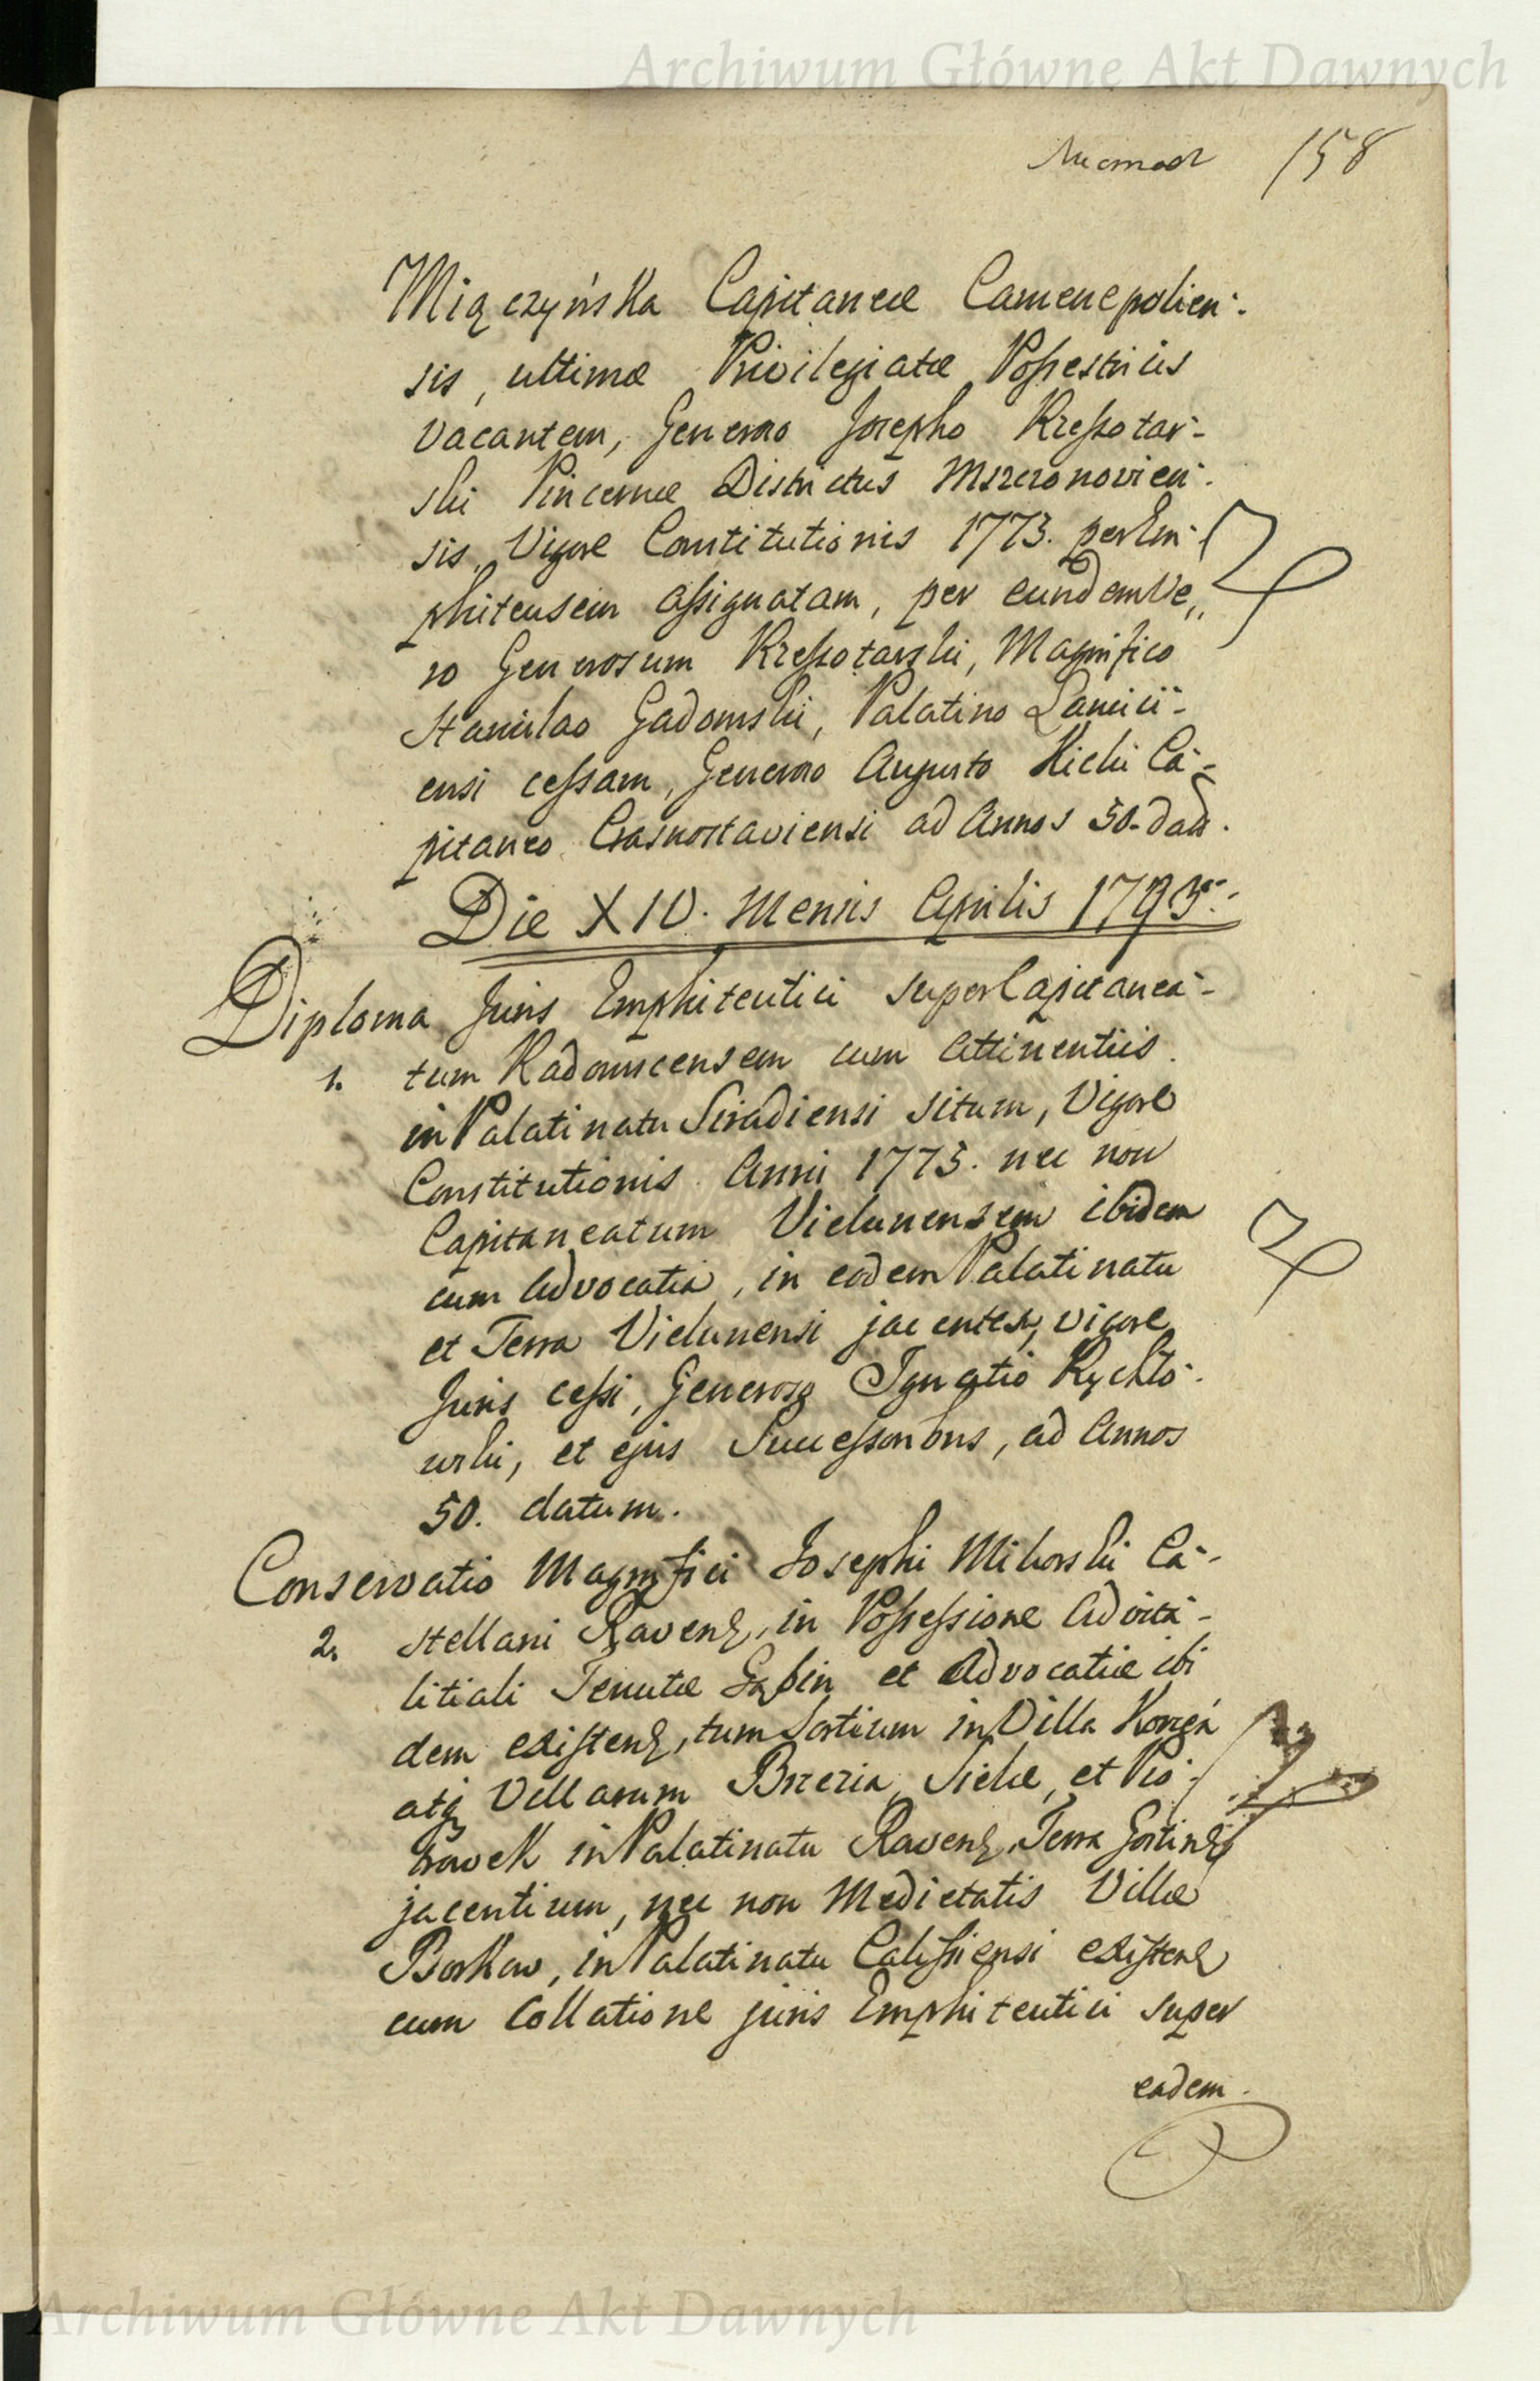 Archiwum Główne Akt Dawnych
158
Miączyńska Capitaneæ Camenepolien-
sis, ultimæ Privilegiatæ Possestricis
vacantem, Generoso Josepho Kressotar-
ski Pincernæ Districtus Mszczonovien-
sis, Vigore Constitutionis 1773. per Em-
phiteusem assignatam, per eundem Ve,,
ro Generosum Kressotarski, Magnifico
Stanislao Gadomski, Palatino Lancici-
ensi cessam, Generoso Augusto Kicki Ca-
pitaneo Crasnostaviensi ad Annos 50. dad.
Die XIV. Mensis Aprilis 1793.
Diploma Juris Emphiteutici super Capitanea-
1. tum Radomscensem cum Attinentiis
in Palatinatu Siradiensi situm, Vigore
Constitutionis Anni 1775. nec non
Capitaneatum Vielunensem ibidem
cum Advocatia, in eodem Palatinatu
et Terra Vielunensi jacentes, vigore
Juris cessi, Generoso Ignatio Rychło-
wski, et ejus Successoribus, ad Annos
50. datum.
Conservatio Magnifici Josephi Mikorski Ca-
2. stellani Ravens, in Possessione Advita-
litiali Tenutæ Gąbin et Advocatiæ ibi
dem existens, tum Sortium in Villa
atq Villarum et
in Palatinatu Ravens, Terra Gostins
jacentium, nec non Medietatis Villæ
Borkow, in Palatinatu Calissiensi existens
cum Collatione juris Emphiteutici super
eadem.
Archiwum Główne Akt Dawnych